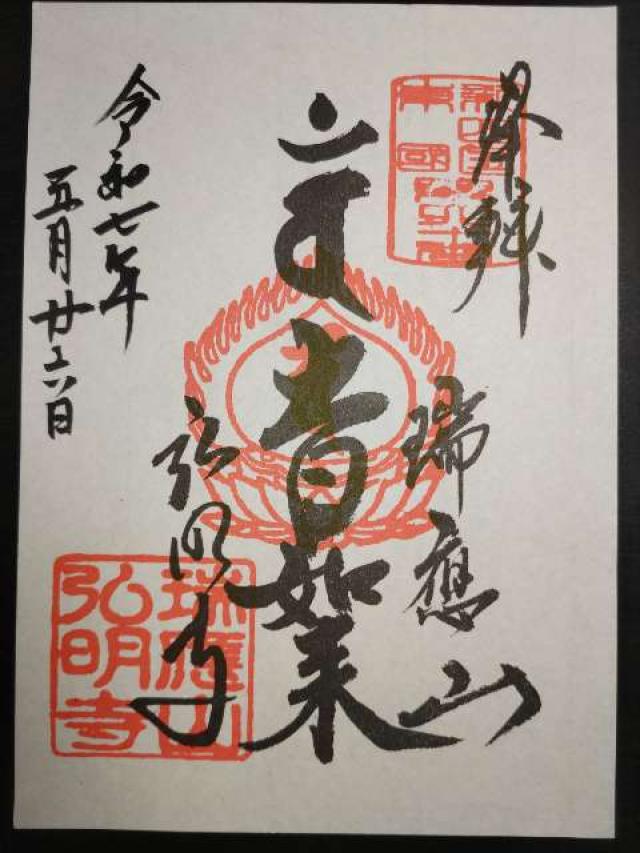 奉拝
瑞應山
如来
弘明寺
令和七年
五月廿六日
瑞應山
弘明寺